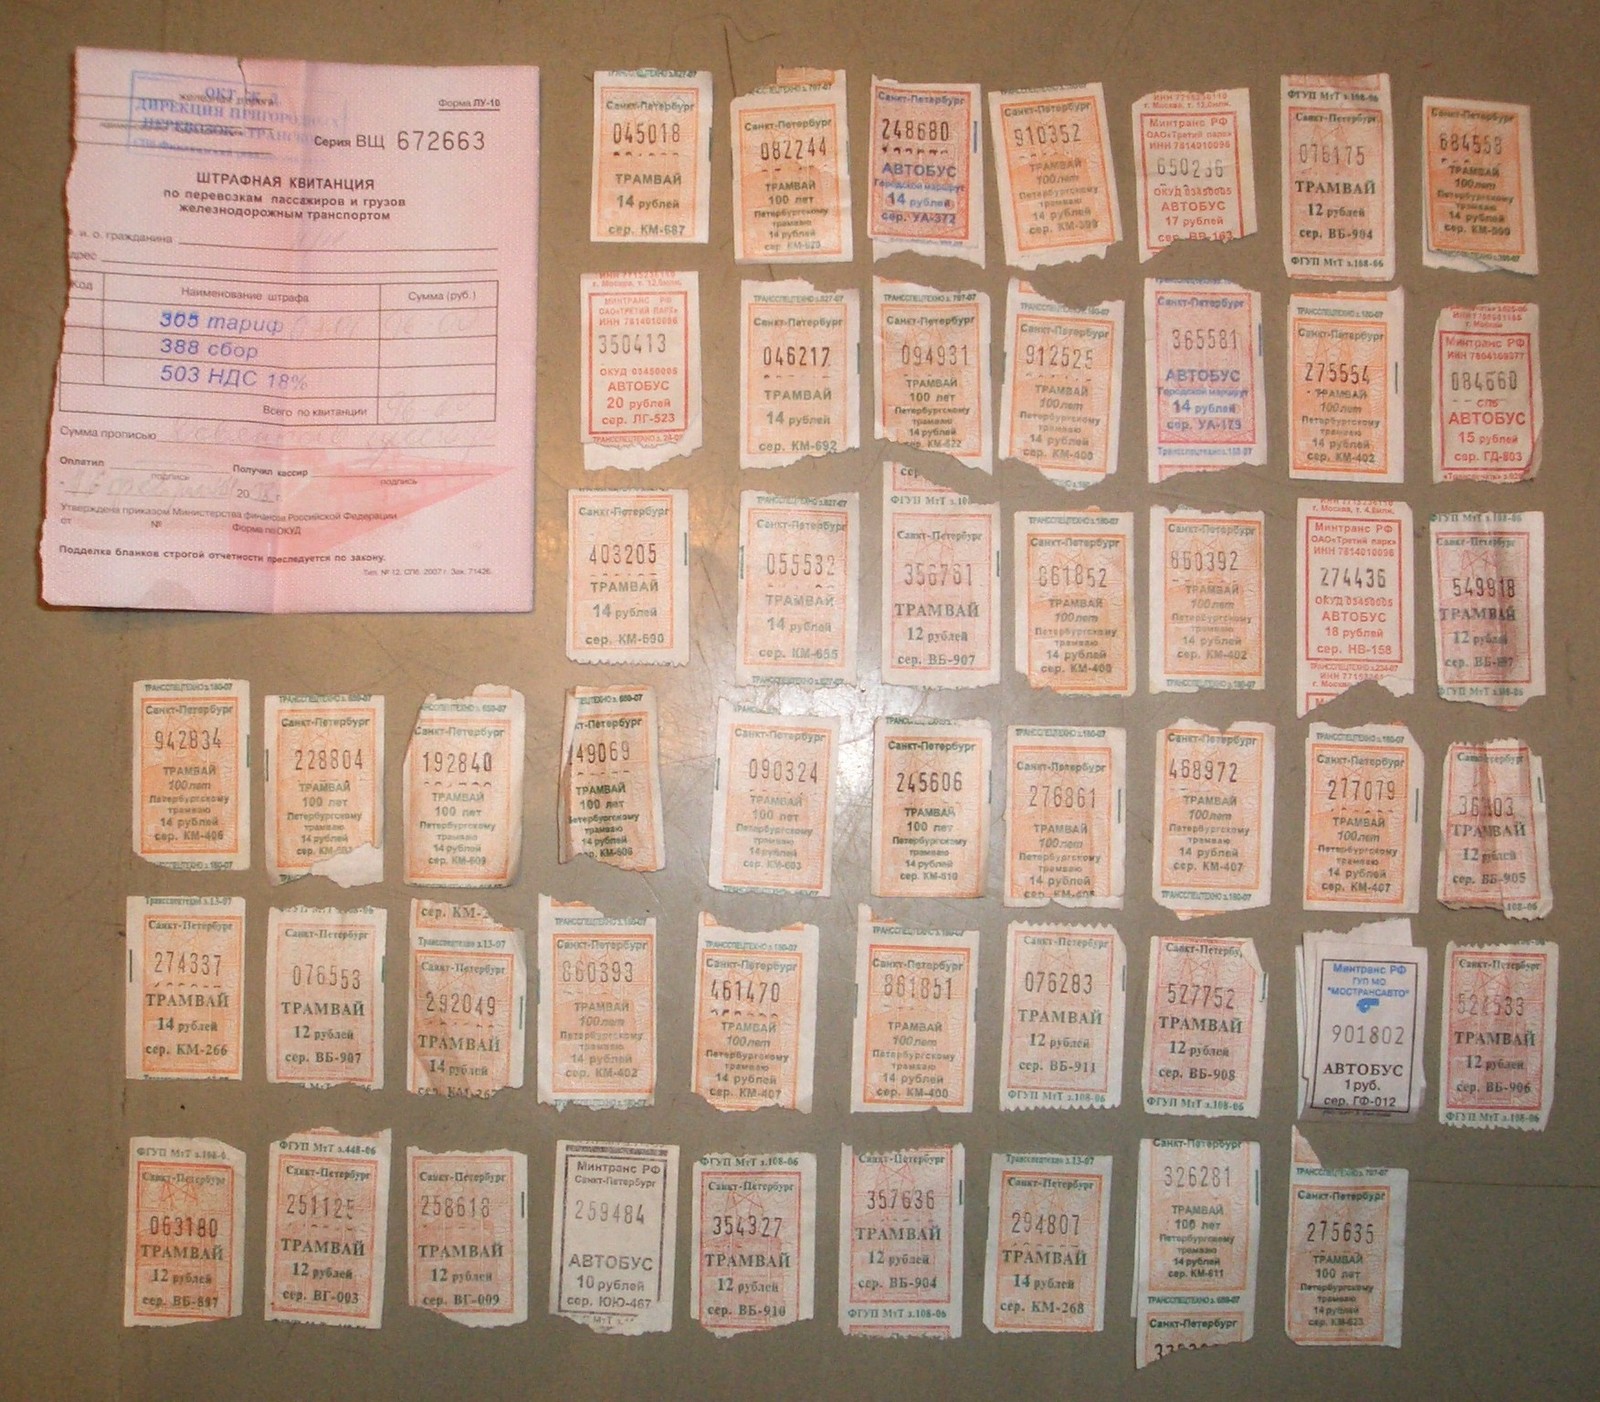 ОКТ. Ж. Д.
ДИРЕКЦИЯ ПРИГОРОДНЫХ
ПЕРЕВОЗОК
Форма ЛУ-10
Серия ВЩ 672663
ШТРАФНАЯ КВИТАНЦИЯ
по перевозкам пассажиров и грузов
железнодорожным транспортом
и. о. гражданина
дрес
Код Наименование штрафа Сумма (руб.)
305 тариф
388 сбор
503 НДС 18%
Всего по квитанции
Сумма прописью
Оплатил Получил кассир
подпись подпись
20 г.
Утверждена приказом Министерства финансов Российской Федерации
от № Форма по ОКУД
Подделка бланков строгой отчетности преследуется по закону.
Тип. № 12. СПб. 2007 г. Зак. 71426.
Санкт-Петербург
045018
ТРАМВАЙ
14 рублей
сер. КМ-687
Санкт-Петербург
082244
ТРАМВАЙ
100 лет
Петербургскому
трамваю
14 рублей
Санкт-Петербург
248680
АВТОБУС
Городской маршрут
14 рублей
сер. УА-372
Санкт-Петербург
910352
ТРАМВАЙ
100лет
Петербургскому
трамваю
14 рублей
сер. КМ-399
ИНН 7715236110
г. Москва, т. 12,6млн.
Минтранс РФ
ОАО«Третий парк»
ИНН 7814010096
650236
ОКУД 03450005
АВТОБУС
17 рублей
ФГУП МтТ з.108-06
Санкт-Петербург
076175
ТРАМВАЙ
12 рублей
сер. ВБ-904
ФГУП МтТ з.108-06
Санкт-Петербург
684553
ТРАМВАЙ
100лет
Петербургскому
трамваю
14 рублей
г. Москва, т. 12,6млн.
МИНТРАНС РФ
ОАО«ТРЕТИЙ ПАРК»
ИНН 7814010096
350413
ОКУД 03450005
АВТОБУС
20 рублей
сер. ЛГ-523
ТРАНССПЕЦТЕХНО з.827-07
Санкт-Петербург
046217
ТРАМВАЙ
14 рублей
сер. КМ-692
ТРАНССПЕЦТЕХНО з.787-07
Санкт-Петербург
094931
ТРАМВАЙ
100 лет
Петербургскому
трамваю
14 рублей
сер. КМ-622
Санкт-Петербург
912525
ТРАМВАЙ
100лет
Петербургскому
трамваю
14 рублей
сер. КМ-400
Санкт-Петербург
365581
АВТОБУС
Городской маршрут
14 рублей
сер. УА-179
Санкт-Петербург
275554
ТРАМВАЙ
100лет
Петербургскому
трамваю
14 рублей
сер. КМ-402
г. Москва
Минтранс РФ
ИНН 7804169077
084660
СПб
АВТОБУС
15 рублей
сер. ГД-803
Санкт-Петербург
403205
ТРАМВАЙ
14 рублей
сер. КМ-590
Санкт-Петербург
055532
ТРАМВАЙ
14 рублей
сер. КМ-655
сер
ФГУП МтТ з.108
Санкт-Петербург
356761
ТРАМВАЙ
12 рублей
сер. ВБ-907
ТРАНССПЕЦТЕХНО з.180-07
Санкт-Петербург
861852
ТРАМВАЙ
100лет
Петербургскому
трамваю
14 рублей
сер. КМ-400
Санкт-Петербург
860392
ТРАМВАЙ
100лет
Петербургскому
трамваю
14 рублей
сер. КМ-402
г. Москва, т. 4,8млн.
Минтранс РФ
ОАО«Третий парк»
ИНН 7814010096
274436
ОКУД 03450005
АВТОБУС
18 рублей
сер. НВ-158
ФГУП МтТ з.108-06
Санкт-Петербург
549918
ТРАМВАЙ
12 рублей
ФГУП МтТ з.108-06
ТРАНССПЕЦТЕХНО з.180-07
Санкт-Петербург
942834
ТРАМВАЙ
100лет
Петербургскому
трамваю
14 рублей
сер. КМ-406
Санкт-Петербург
228804
ТРАМВАЙ
100 лет
Петербургскому
трамваю
14 рублей
ТРАНССПЕЦТЕХНО з. 659-07
Санкт-Петербург
192840
ТРАМВАЙ
100 лет
Петербургскому
трамваю
14 рублей
сер. КМ-609
нкт-Петербург
49069
ТРАМВАЙ
100 лет
етербургскому
трамваю
14 рублей
Санкт-Петербург
090324
ТРАМВАЙ
100 лет
Петербургскому
трамваю
14 рублей
сер. КМ-603
Санкт-Петербург
245606
ТРАМВАЙ
100 лет
Петербургскому
трамваю
14 рублей
сер. КМ-610
ТРАНССПЕЦТЕХНО з.180-07
Санкт-Петербург
276861
ТРАМВАЙ
100лет
Петербургскому
трамваю
14 рублей
Санкт-Петербург
468972
ТРАМВАЙ
100лет
Петербургскому
трамваю
14 рублей
сер. КМ-407
ТРАНССПЕЦТЕХНО з.180-07
Санкт-Петербург
277079
ТРАМВАЙ
100лет
Петербургскому
трамваю
14 рублей
сер. КМ-407
ТРАМВАЙ
12 рублей
сер. ВБ-905
108-06
Трансспецтехно з.13-07
Санкт-Петербург
274337
ТРАМВАЙ
14 рублей
сер. КМ-266
Санкт-Петербург
076553
ТРАМВАЙ
12 рублей
сер. ВБ-907
сер. КМ-2
Трансспецтехно з.13-07
Санкт-Петербург
292049
ТРАМВАЙ
14 рублей
Санкт-Петербург
860393
ТРАМВАЙ
100лет
Петербургскому
трамваю
14 рублей
сер. КМ-402
ТРАНССПЕЦТЕХНО з.180-07
Санкт-Петербург
461470
ТРАМВАЙ
100лет
Петербургскому
трамваю
14 рублей
сер. КМ-407
ТРАНССПЕЦТЕХНО з.180-07
Санкт-Петербург
861851
ТРАМВАЙ
100лет
Петербургскому
трамваю
14 рублей
сер. КМ-400
Санкт-Петербург
076283
ТРАМВАЙ
12 рублей
сер. ВБ-911
ФГУП МтТ з.108-06
Санкт-Петербу
527752
ТРАМВАЙ
12 рублей
сер. ВБ-908
ФГУП МтТ з.108-06
Минтранс РФ
ГУП МО
"МОСТРАНСАВТО"
901802
АВТОБУС
1 руб.
сер. ГФ-012
Санкт-Петербург
ТРАМВАЙ
12 рублей
сер. ВБ-906
ФГУП МтТ з.108-06
ФГУП МтТ з.108-0
Санкт-Петербург
063180
ТРАМВАЙ
12 рублей
сер. ВБ-897
ФГУП МтТ з.448-06
Санкт-Петербург
251125
ТРАМВАЙ
12 рублей
сер. ВГ-003
Санкт-Петербург
258618
ТРАМВАЙ
12 рублей
сер. ВГ-009
Минтранс РФ
Санкт-Петербург
259484
АВТОБУС
10 рублей
сер. ЮЮ-467
ФГУП МтТ з.108-06
Санкт-Петербург
354327
ТРАМВАЙ
12 рублей
сер. ВБ-910
Санкт-Петербург
357636
ТРАМВАЙ
12 рублей
сер. ВБ-904
ФГУП МтТ з.108-06
Трансспецтехно з.13-07
Санкт-Петербург
294807
ТРАМВАЙ
14 рублей
сер. КМ-268
Санкт-Петербург
326281
ТРАМВАЙ
100 лет
Петербургскому
трамваю
14 рублей
сер. КМ-611
ТРАНССПЕЦТЕХНО з. 659-07
Санкт-Петербург
ТРАНССПЕЦТЕХНО з.787-07
Санкт-Петербург
275635
ТРАМВАЙ
100 лет
Петербургскому
трамваю
14 рублей
сер. КМ-623